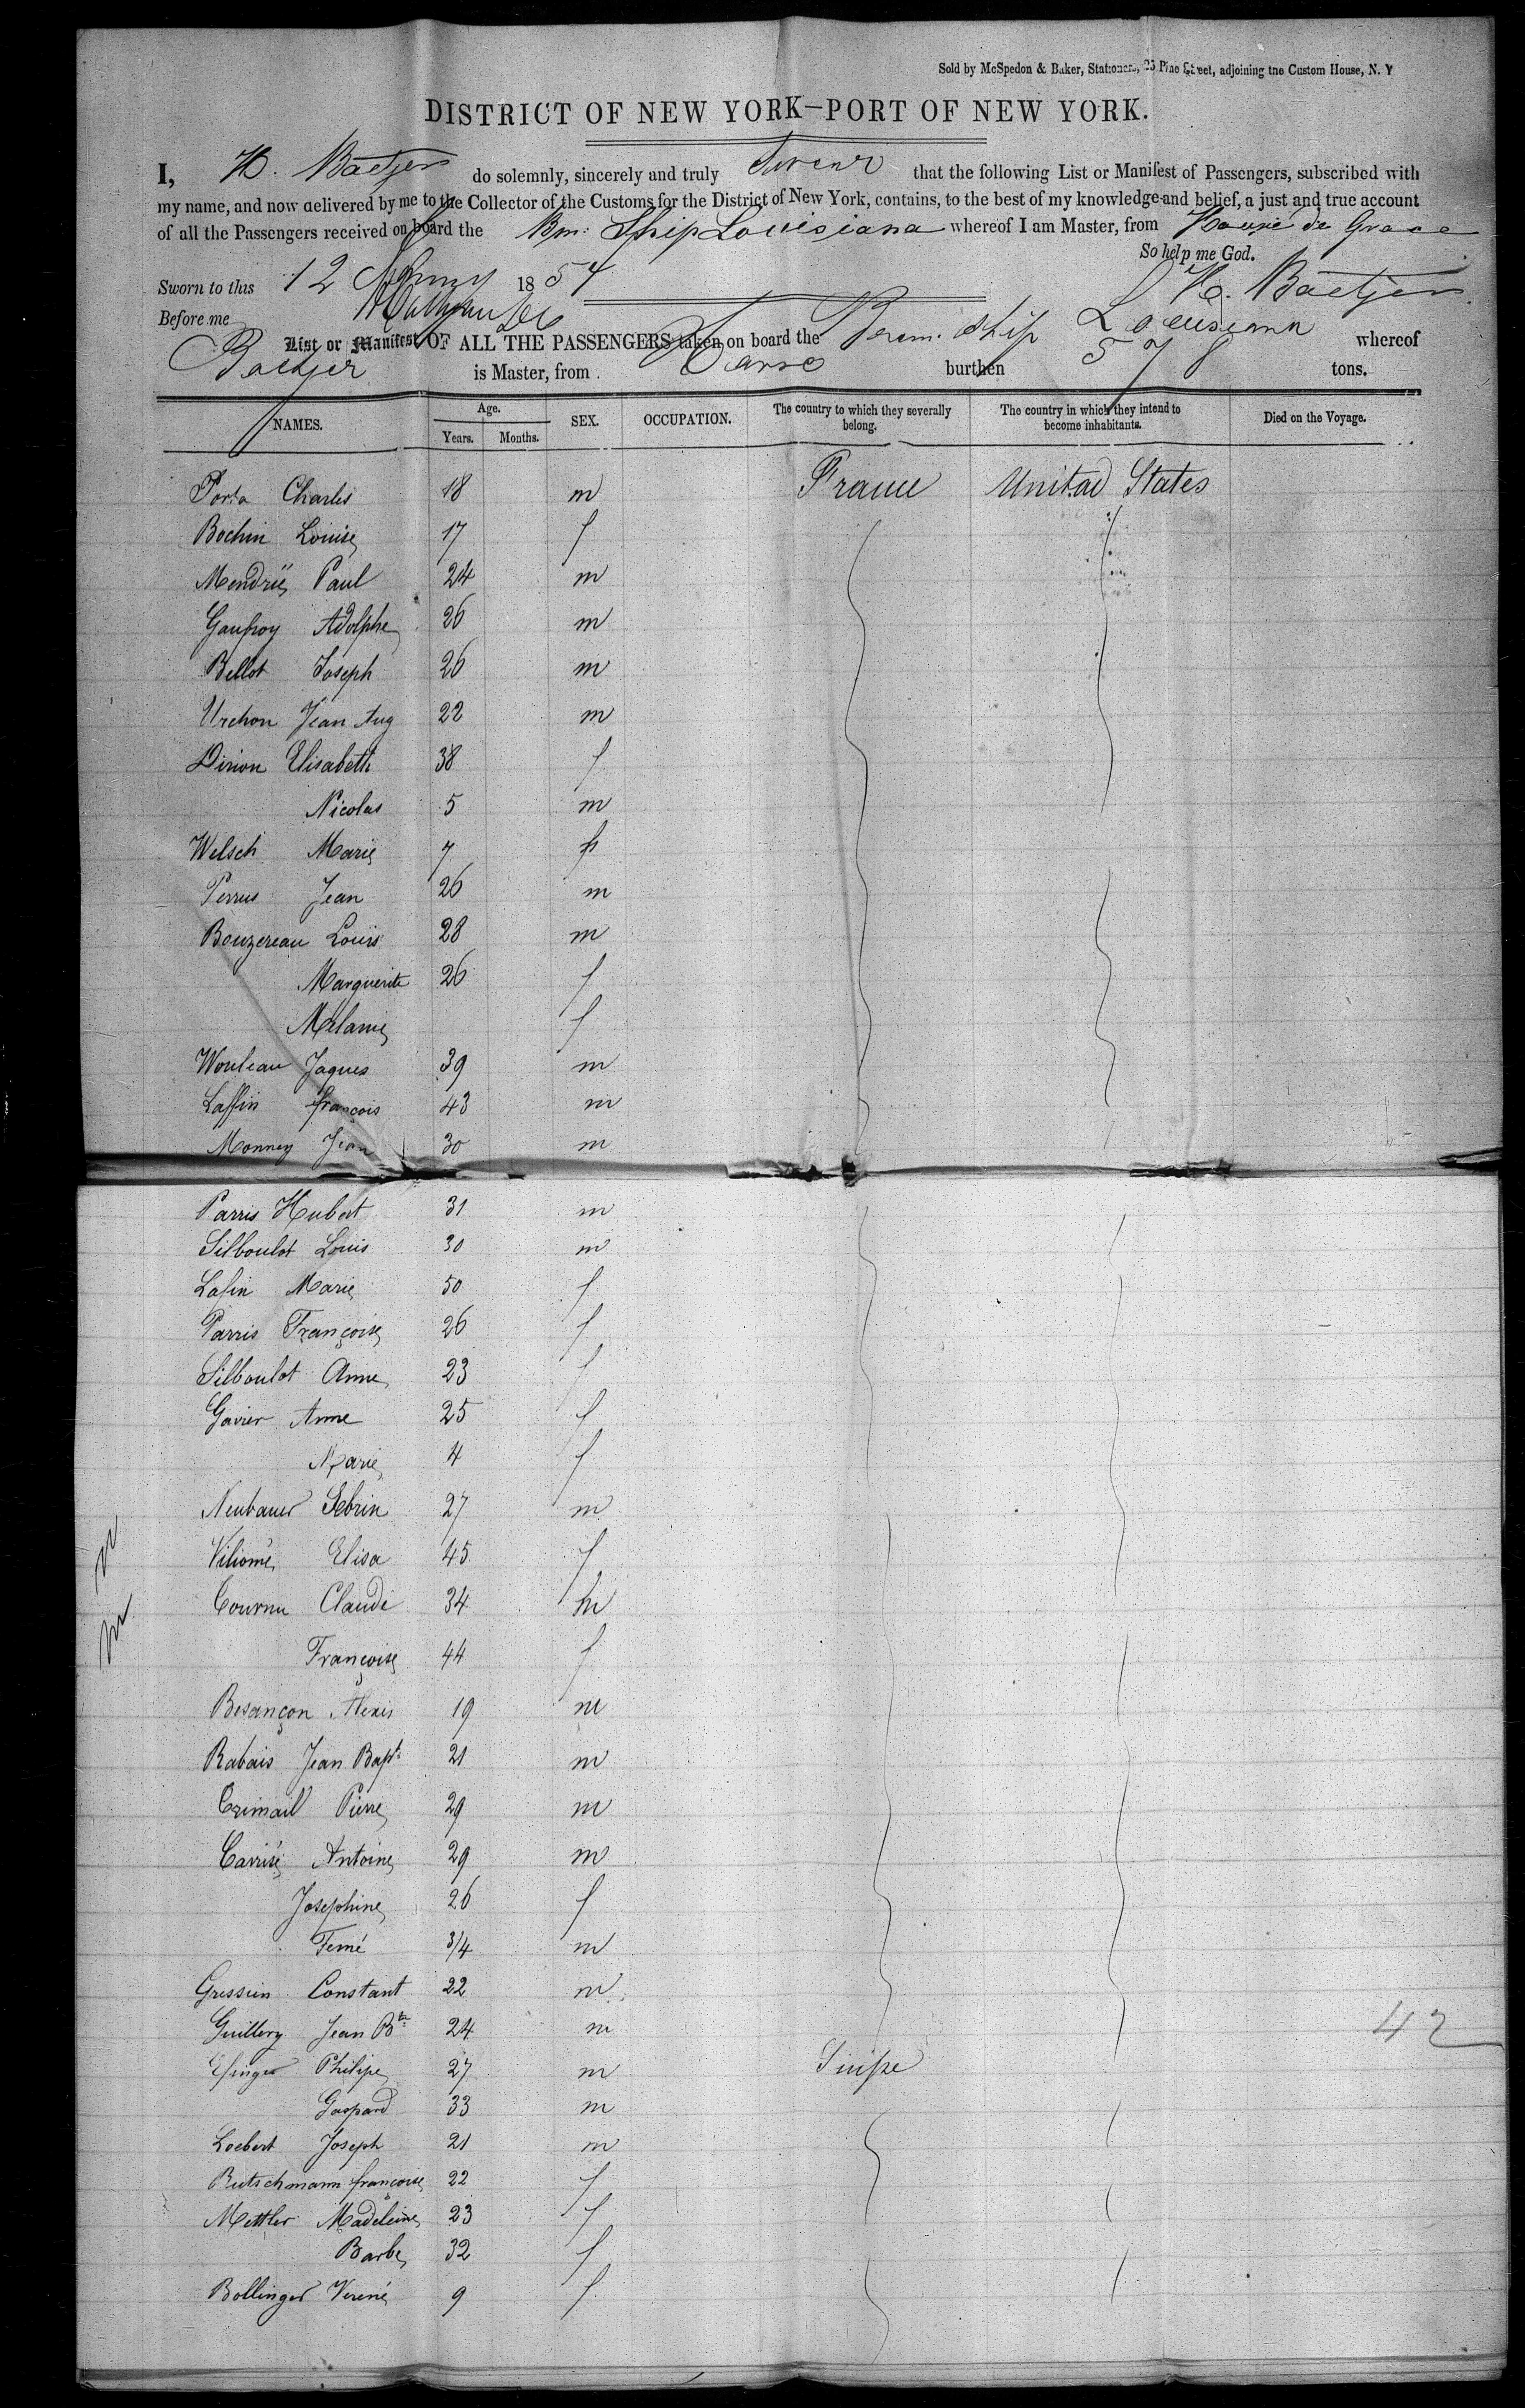 Sold by McSpedon & Baker, Stationers, 25 Pine Street, adjoining the Custom House, N. Y
DISTRICT OF NEW YORK—PORT OF NEW YORK.
I, H. Baetjer do solemnly, sincerely and truly Swear that the following List or Manifest of Passengers, subscribed with
my name, and now delivered by me to the Collector of the Customs for the District of New York, contains, to the best of my knowledge and belief, a just and true account
of all the Passengers received on board the Brm: Ship Louisiana whereof I am Master, from Havre de Grace
So help me God.
Sworn to this 12 1854 H. Baetjer
Before me
List or Manifest OF ALL THE PASSENGERS taken on board the Brem. Ship Louisiana whereof
Baetjer is Master, from Havre burthen 578 tons.
NAMES. Age. Years. Months. SEX. OCCUPATION. The country to which they severally belong. The country in which they intend to become inhabitants. Died on the Voyage.
Porta Charles 18 m France United States
Bochin Louise 17 f
Mendriё Paul 24 m
Gaufroy Adolphe 26 m
Bellot Joseph 26 m
Urchon Jean Aug 22 m
Dirion Elisabeth 38 f
Nicolas 5 m
Welsch Marie 7 f
Perrus Jean 26 m
Bouzereau Louis 28 m
Marguerite 26 f
Melanie f
Wouleau Jaques 39 m
Laffin françois 43 m
Monney Jean 30 m
Parris Hubert 31 m
Silboulot Louis 30 m
Lafin Marie 50 f
Parris Françoise 26 f
Silboulot Anne 23 f
Gavier Anne 25 f
Marie 4 f
Neubauer Sebrin 27 m
Viliomé Elisa 45 f
Cournu Claude 34 m
Françoise 44 f
Besançon Alexis 19 m
Rabais Jean Bapt. 21 m
Crimail Pierre 29 m
Carrisé Antoine 29 m
Josephine 26 f
Femé 3/4 m
Gressien Constant 22 m
Guillery Jean Bte 24 m
42
Efinger Philipe 27 m Suisse
Gaspard 33 m
Loebert Joseph 21 m
Rutschmann françoise 22 f
Mettler Madeleine 23 f
Barbe 32 f
Bollinger Verene 9 f